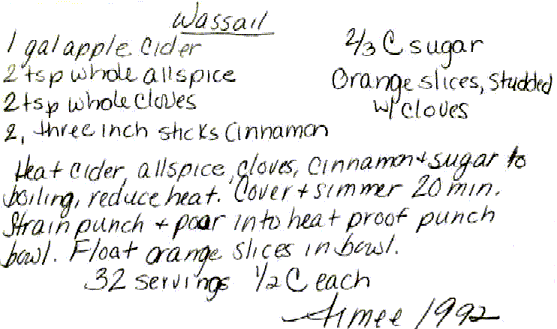 Wassail
1 gal apple cider
2 tsp whole allspice
2 tsp whole cloves
2, three inch sticks Cinnamon
2/3 C sugar
Orange slices, studded
w/ cloves
Heat cider, allspice, cloves, cinnamon + sugar to
boiling, reduce heat. Cover + simmer 20 min.
Strain punch + pour into heat proof punch
bowl. Float orange slices in bowl.
32 servings 1/2 C each
Aimee 1992